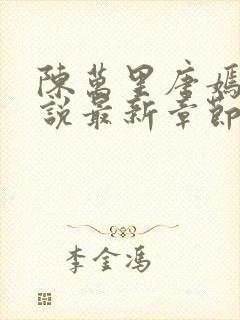 陳萬里唐嫣
說最新章節
李金馮